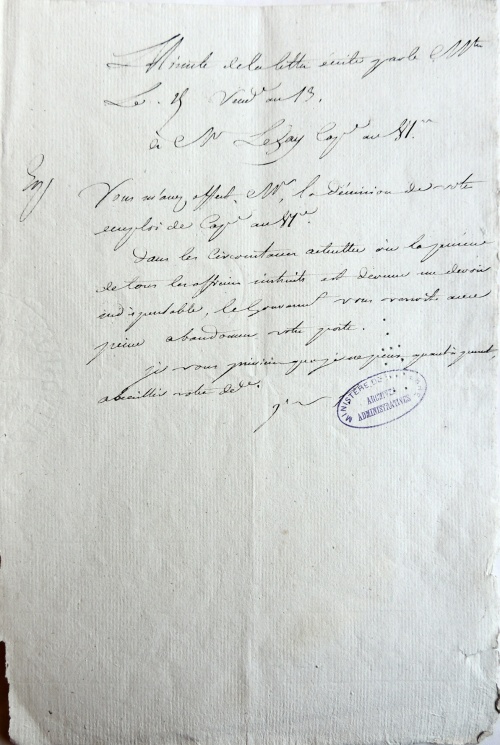 Minute de la lettre écrite par le Mtre
Le . Vendre an 13.
à Mr Lezay Capne au 11e
Vous m'avez offert, Mr, la démission de votre
emploi de Capne au 11e.
Dans les circonstances actuelles où la présence
de tous les officiers instruits est devenue un devoir
indispensable, le Gouvernemt vous verroit avec
peine abandonner votre poste.
je vous préviens que je ne puis, quant à présent,
accueillir votre dde.
MINISTÈRE DE LA GUERRE
ARCHIVES
ADMINISTRATIVES